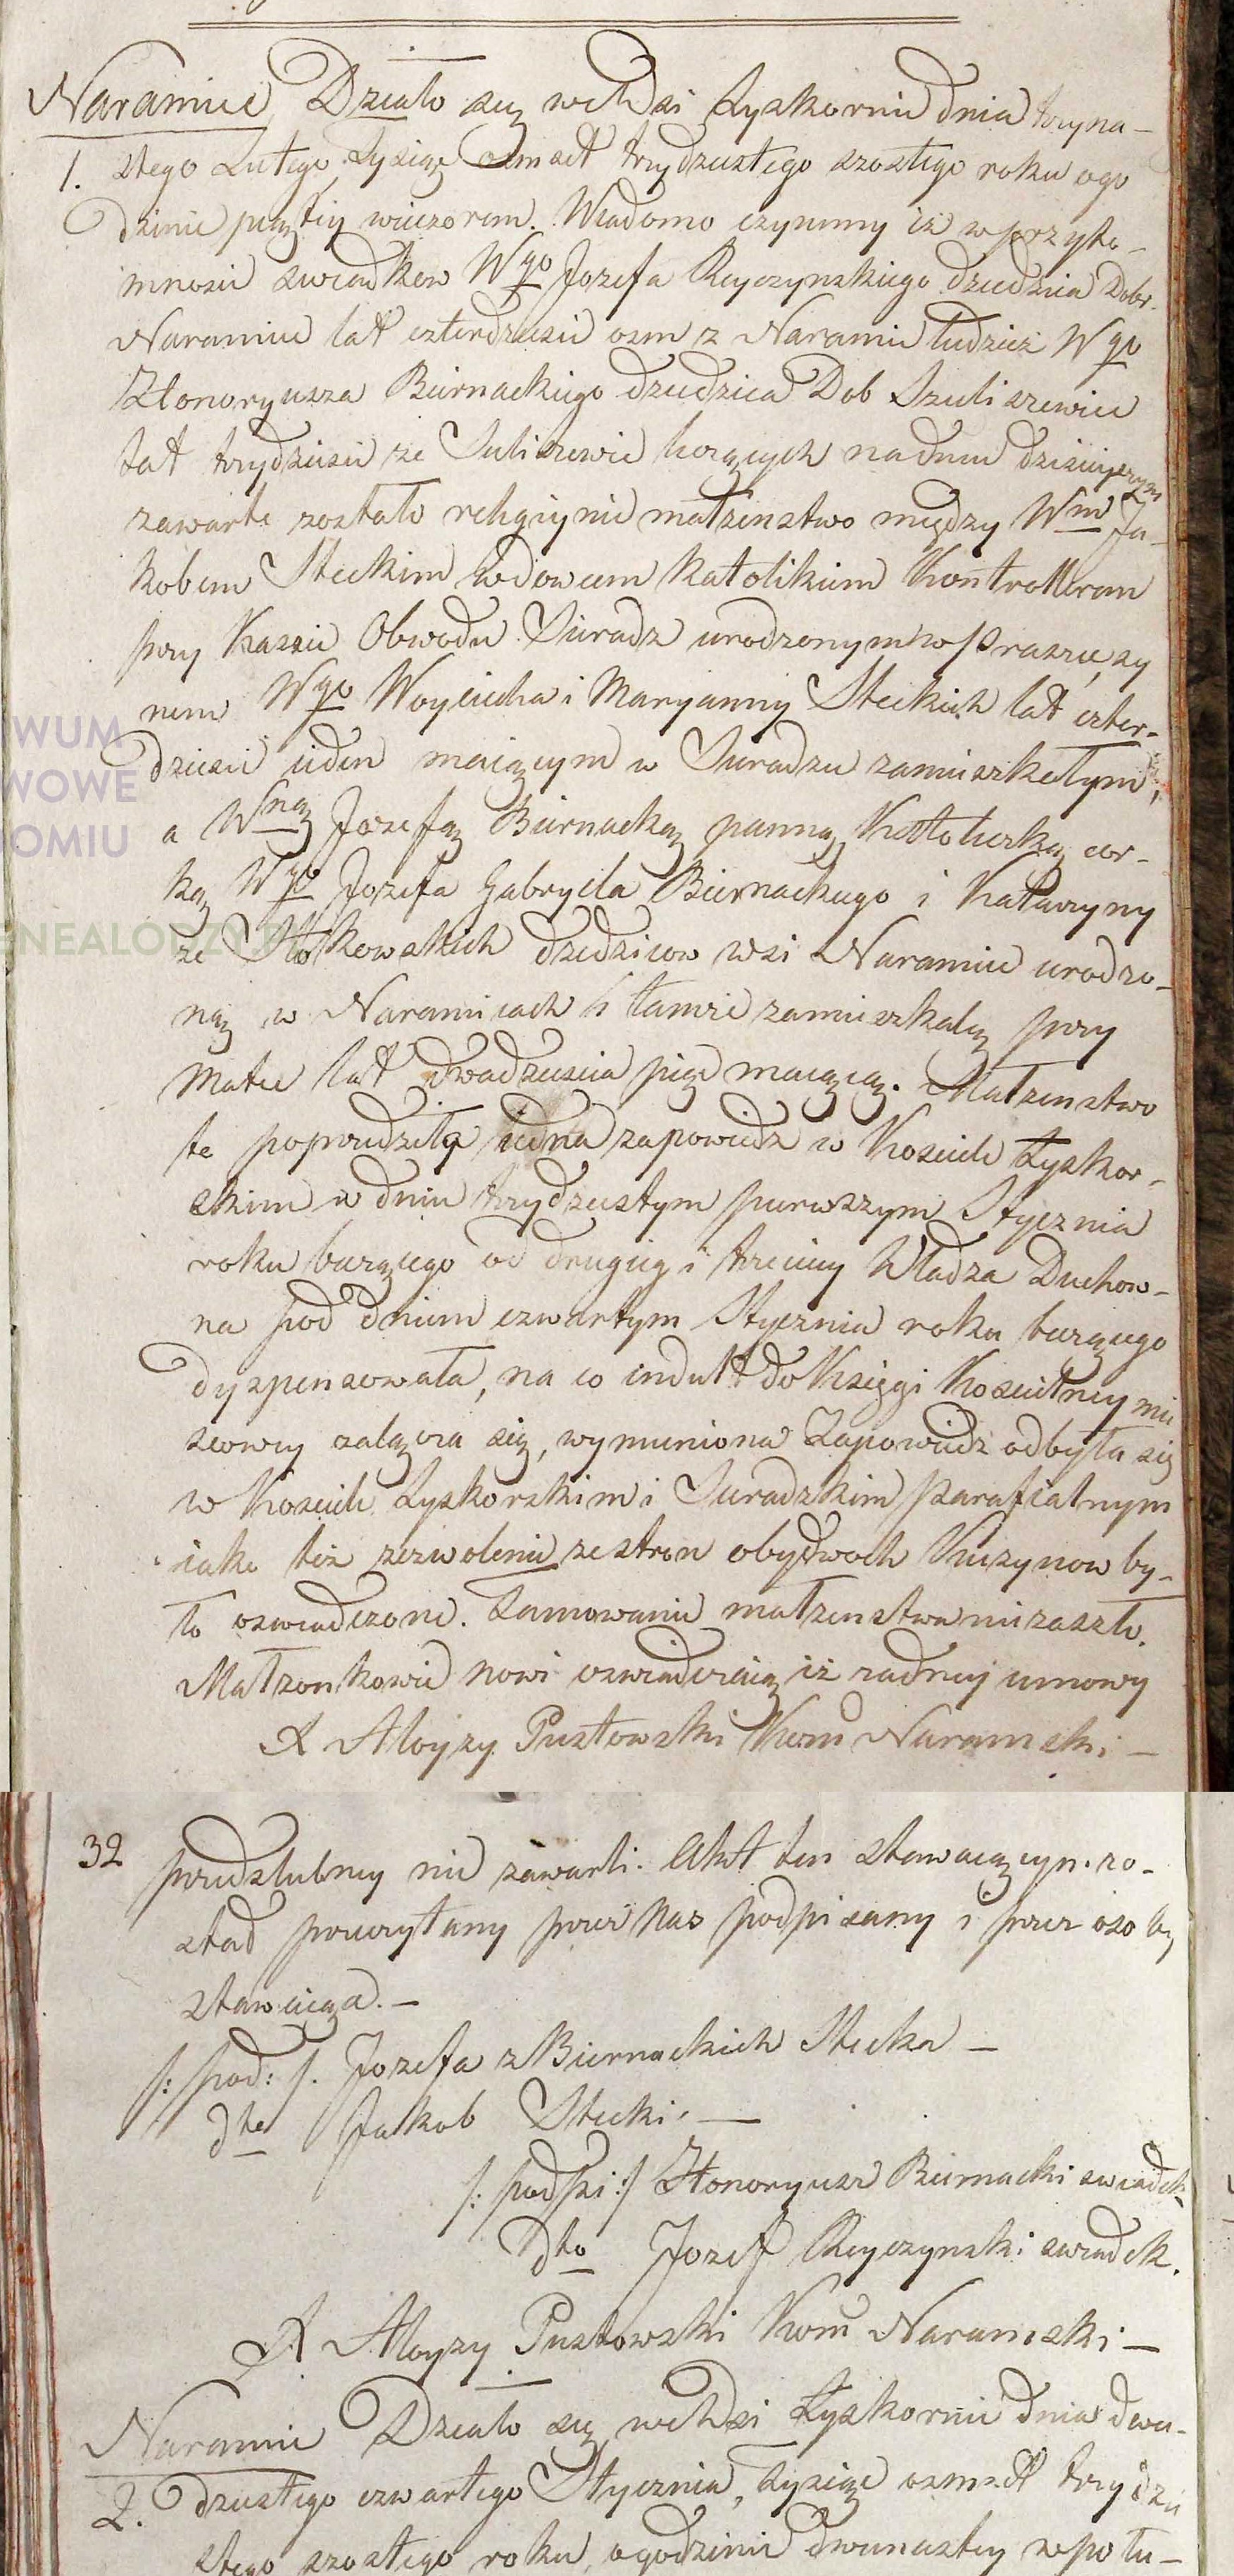 Naramice Działo się we Wsi Łyskorni dnia trzyna-
1. stego Lutego Tysiąc osmset trzydziestego szostego roku o go
dzinie piątey wieczorem. Wiadomo czynimy iż w przyto-
mnosci swiadkow Wgo Jozefa Ryczynskiego dziedzica Dobr.
Naramice lat czterdziesci osm z Naramic tudzież Wgo
Honoryusza Biernackiego dziedzica Dob Szuliszewice
lat trzydziesci ze Suliszewic liczących na dniu dzisieyszym
zawarte zostało religiynie małzenstwo między Wm Ja-
kobem Steckim wdowcem katolikiem Kontrollerem
przy Kassie Obwodu Sieradz urodzonym w Praszce, sy
nem Wgo Woyciecha i Maryanny Steckich lat czter-
dziesci ieden maiącym w Sieradzu zamieszkałym,
a Wną Jozefą Biernacką panną Katoliczką cor-
ką Wgo Jozefa Gabryela Biernackiego i Katarzyny
ze Stokowskich dziedzicow wsi Naramice urodzo-
ną w Naramicach i tamże zamieszkałą przy
Matce lat dwadziescia pięc maiącą. Małzenstwo
te poprzedziła iedna zapowiedz w Kosciele Łyskor-
skim w dniu trzydziestym pierwszym Stycznia
roku bieżącego od drugiey i trzeciey Władza Duchow-
na pod dniem czwartym Stycznia roku bieżącego
dyspensowała, na co indult do Księgi Koscielney miey
scowey załącza się, wymieniona Zapowiedz odbyła się
w Kosciele Łyskorskim i Sieradzkim Parafialnym
iako też zezwolenie ze stron obydwoch Kuzynow by-
ło oswiadczone. Tamowanie małzenstwa nie zaszło.
Małzonkowie nowi oswiadczaią iż żadney umowy
X Aloyzy Pustowski Kom Naramski -
32 przedslubney nie zawarli. Akt ten stawaiącym. zo-
stał przeczytany przez Nas podpisany i przez osoby
stawaiące. -
/: pod: /. Jozefa z Biernackich Stecka -
dto Jakob Stecki. -
/: podpi:/ Honoryusz Biernacki swiadek
dto Jozef Ryczynski swiadek.
X Aloyzy Pustowski Kom Naramski -
Naramice Działo się we Wsi Łyskorni dnia dwu-
2. dziestego czwartego Stycznia, tysiąc osmset trzydzie
stego szostego roku, o godzinie dwunastey w połu-